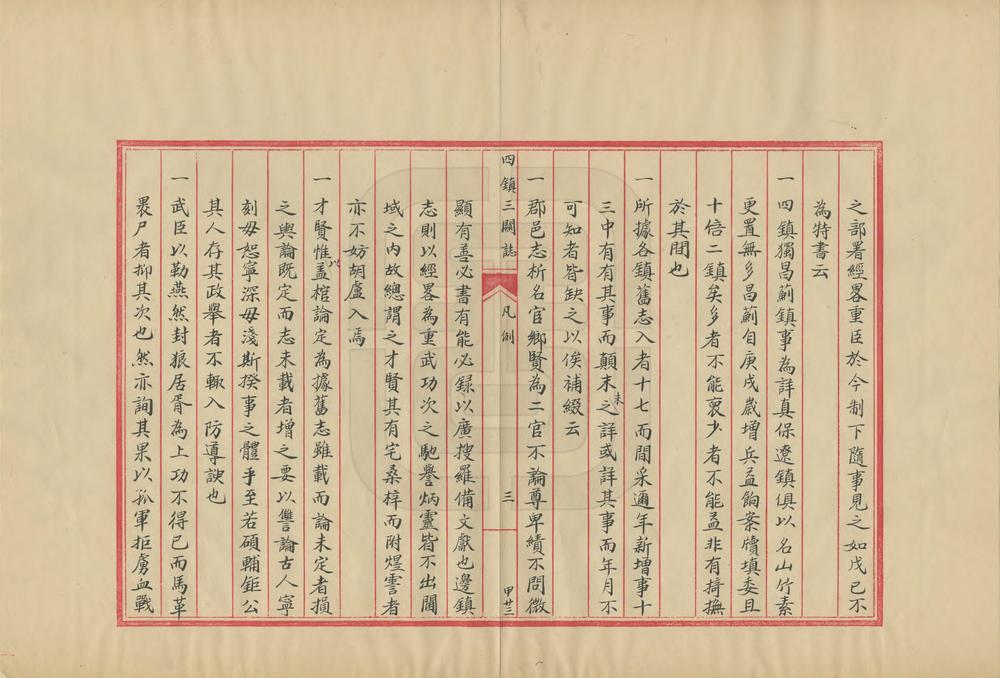 之部署經畧重臣於今制下隨事見之如戊已不
為特書云
一四鎮獨昌薊鎮事為詳真保遼鎮俱以名山竹素
更置無多昌薊自庚戌歲增兵益餉案牘填委且
十倍二鎮矣多者不能裒少者不能益非有掎撫
於其間也
一所據各鎮舊志入者十七而間采邇年新增事十
三中有有其事而顛末未之詳或詳其事而年月不
可知者皆缺之以俟補綴云
一郡邑志析名官鄉賢為二官不論尊卑績不問微
四鎮三關誌 凡例 三 甲廿三
顯有善必書有能必録以廣搜羅備文獻也邊鎮
志則以經畧為重武功次之馳譽炳靈皆不出閫
域之內故總謂之才賢其有宅桑梓而附煋霅者
亦不妨胡盧入焉
一才賢惟以盖棺論定為據舊志雖載而論未定者損
之輿論既定而志未載者增之要以讐論古人寧
刻毋恕寧深毋淺斯揆事之體乎至若碩輔鉅公
其人存其政舉者不輙入防導諛也
一武臣以勒燕然封狼居胥為上功不得已而馬革
褁尸者抑其次也然亦詢其果以孤軍拒虜血戰